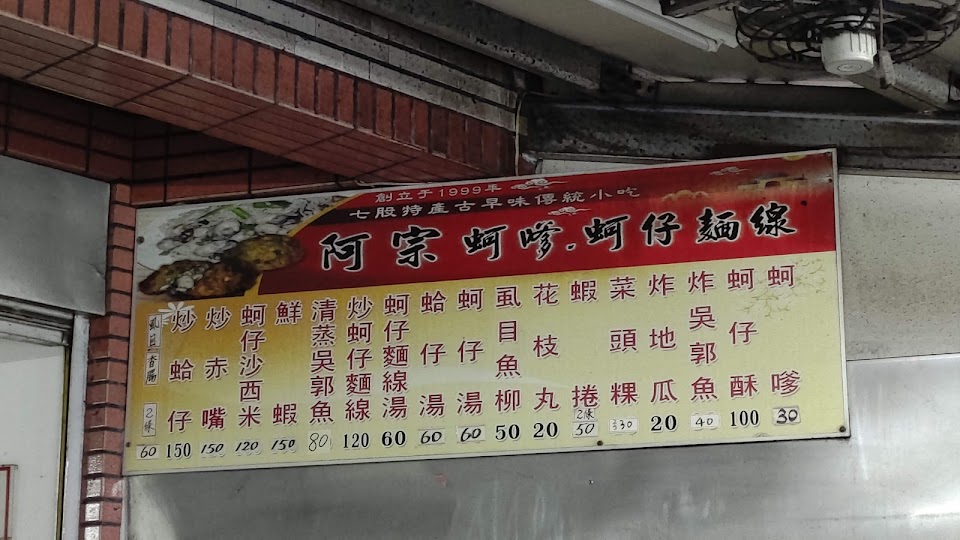 創立于1999年
七股特產古早味傳統小吃
阿宗蚵嗲.蚵仔麵線
蚵嗲 30
蚵仔酥 100
炸吳郭魚 40
炸地瓜 20
菜頭粿 30
蝦捲 2條 50
花枝丸 20
虱目魚柳 50
蚵仔湯 60
蛤仔湯 60
蚵仔麵線湯 60
炒蚵仔麵線 120
清蒸吳郭魚 80
鮮蝦 150
蚵仔沙西米 120
炒赤嘴 150
炒蛤仔 150
香腸 2條 60